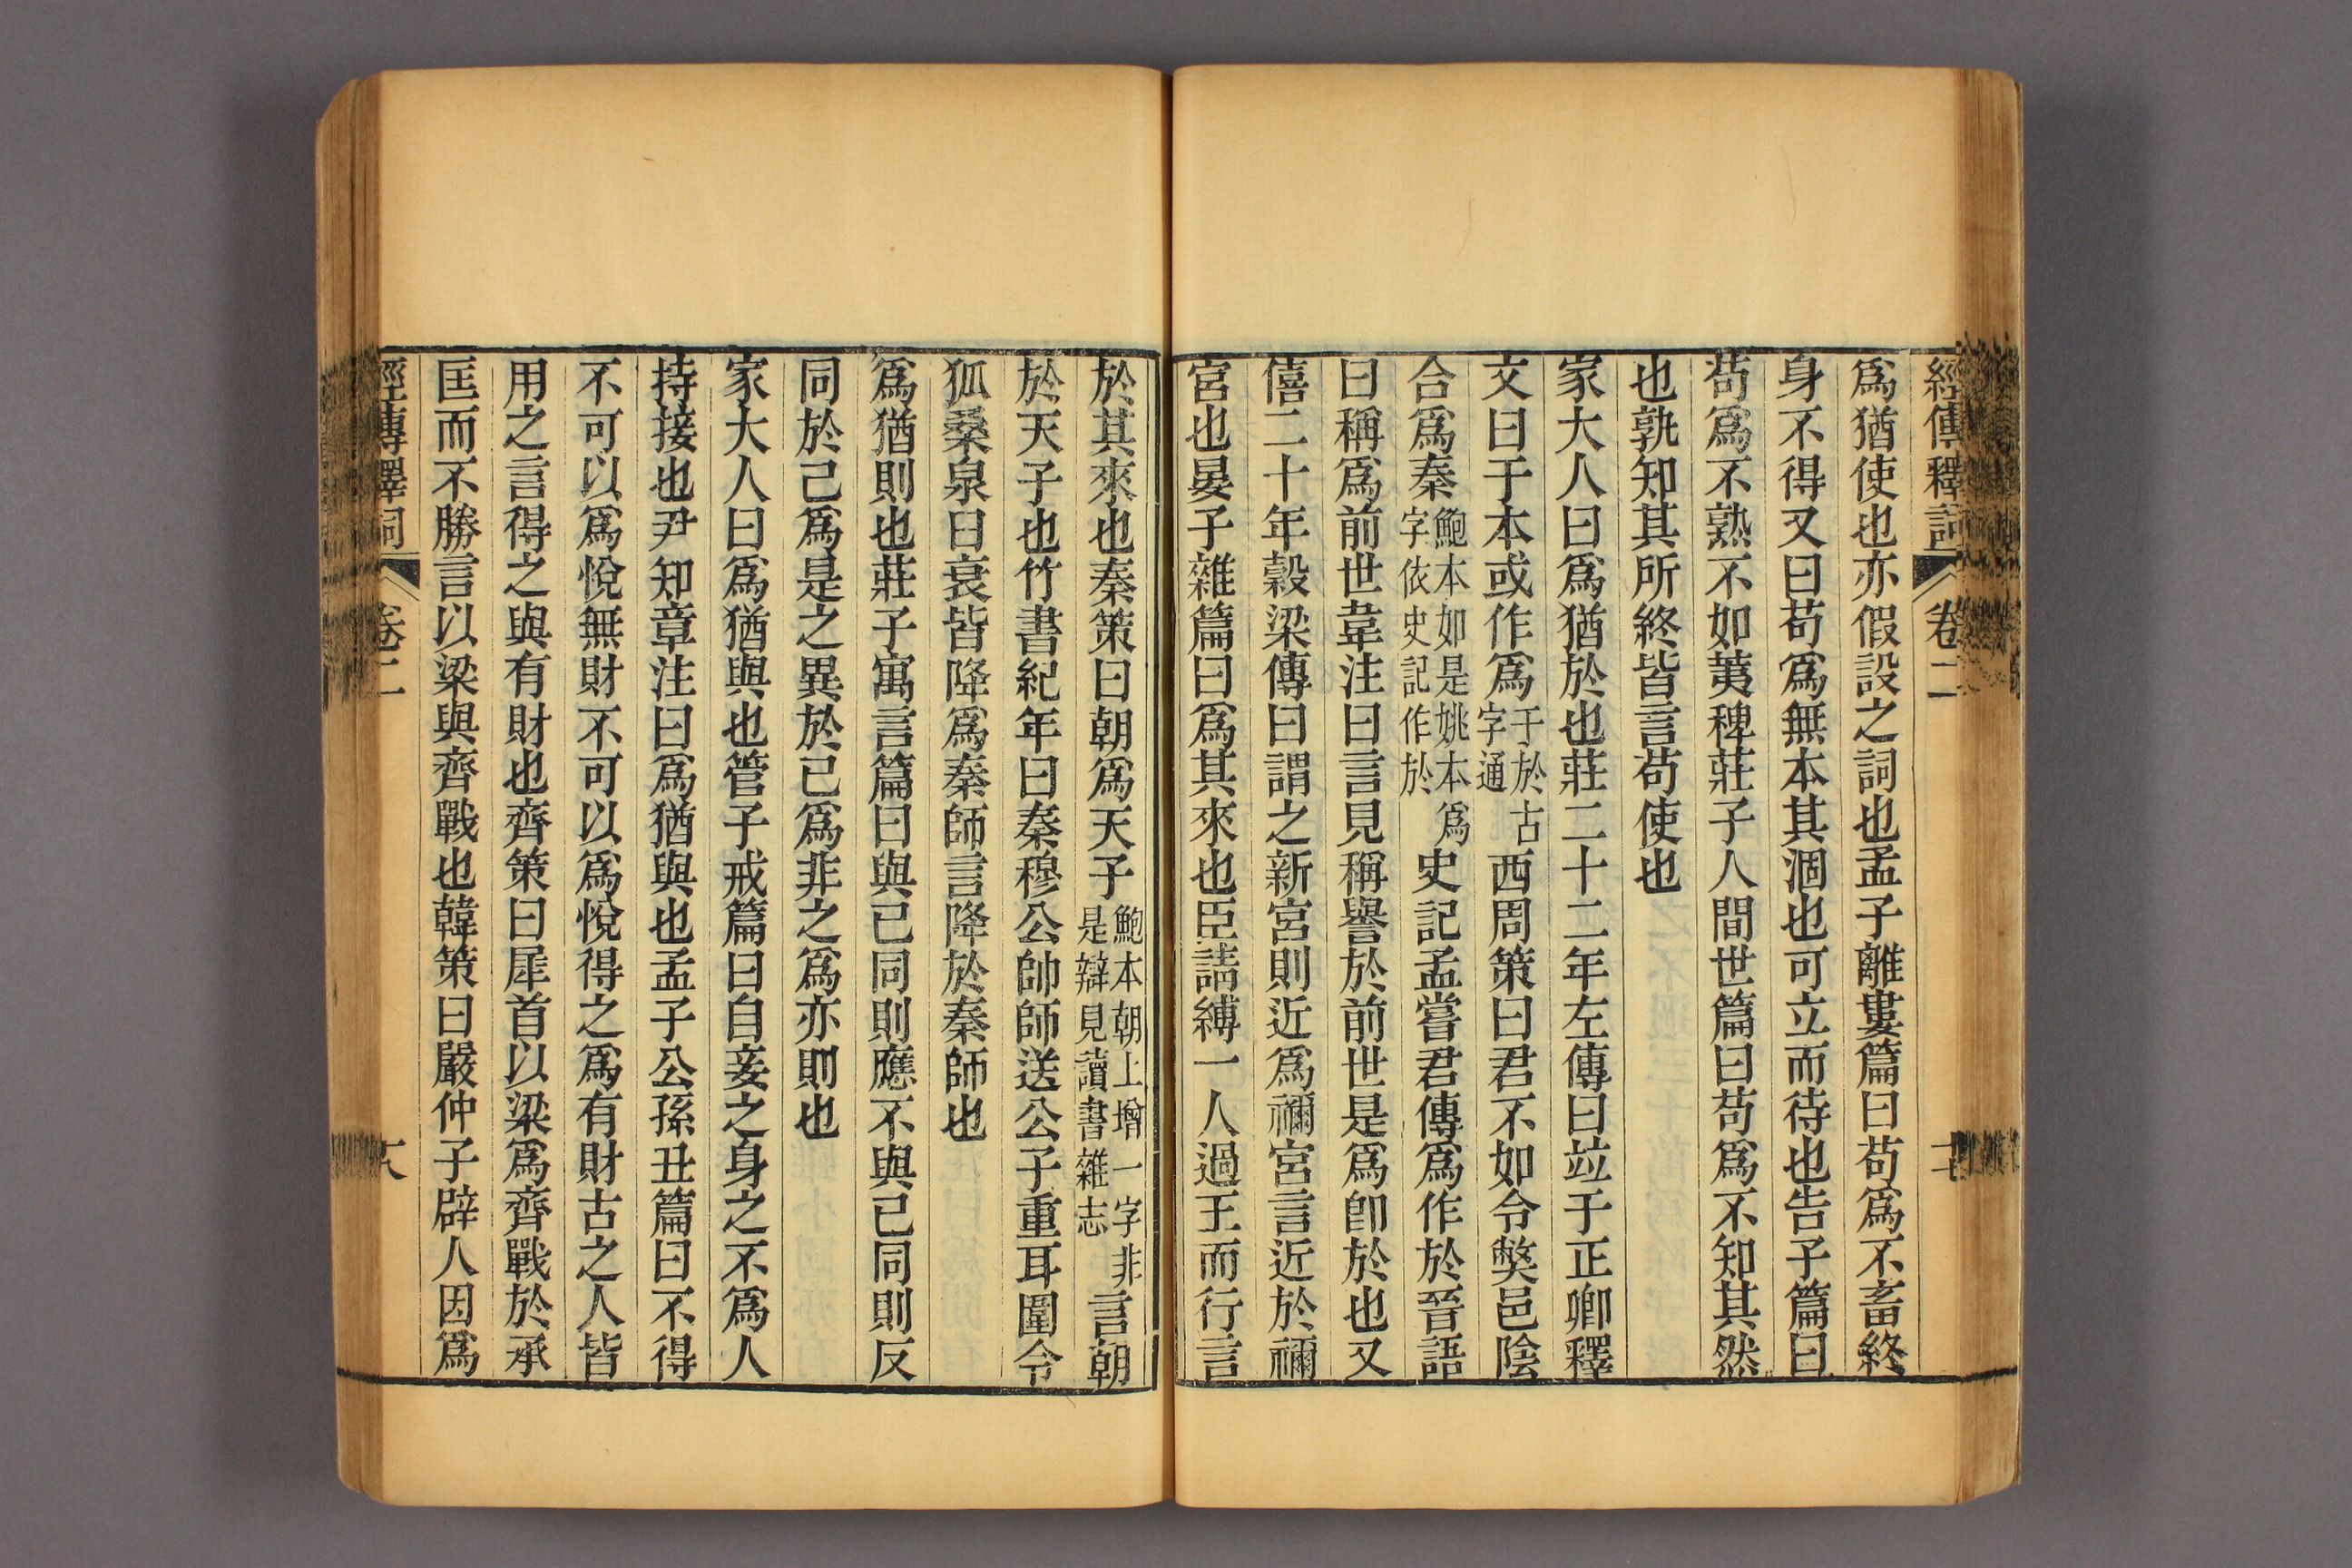 經傳釋詞 卷二
爲猶使也亦假設之詞也孟子離婁篇曰苟爲不畜終
身不得又曰苟爲無本其涸也可立而待也告子篇曰
苟爲不熟不如荑稗莊子人間世篇曰苟爲不知其然
也孰知其所終皆言苟使也
家大人曰爲猶於也莊二十二年左傳曰竝于正卿釋
文曰于本或作爲于於古字通西周策曰君不如令獘邑陰
合爲秦鮑本如是姚本爲字依史記作於史記孟嘗君傳爲作於晉語
曰稱爲前世韋注曰言見稱譽於前世是爲卽於也又
僖二十年穀梁傳曰謂之新宮則近爲禰宮言近於禰
宮也晏子雜篇曰爲其來也臣請縛一人過王而行言
於其來也秦策曰朝爲天子鮑本朝上增一字非是辯見讀書雜志言朝
於天子也竹書紀年曰秦穆公帥師送公子重耳圍令
狐桑泉臼衰皆降爲秦師言降於秦師也
爲猶則也莊子寓言篇曰與己同則應不與己同則反
同於己爲是之異於己爲非之爲亦則也
家大人曰爲猶與也管子戒篇曰自妾之身之不爲人
持接也尹知章注曰爲猶與也孟子公孫丑篇曰不得
不可以爲悅無財不可以爲悅得之爲有財古之人皆
用之言得之與有財也齊策曰犀首以梁爲齊戰於承
匡而不勝言以梁與齊戰也韓策曰嚴仲子辟人因爲
經傳釋詞 卷二 十八